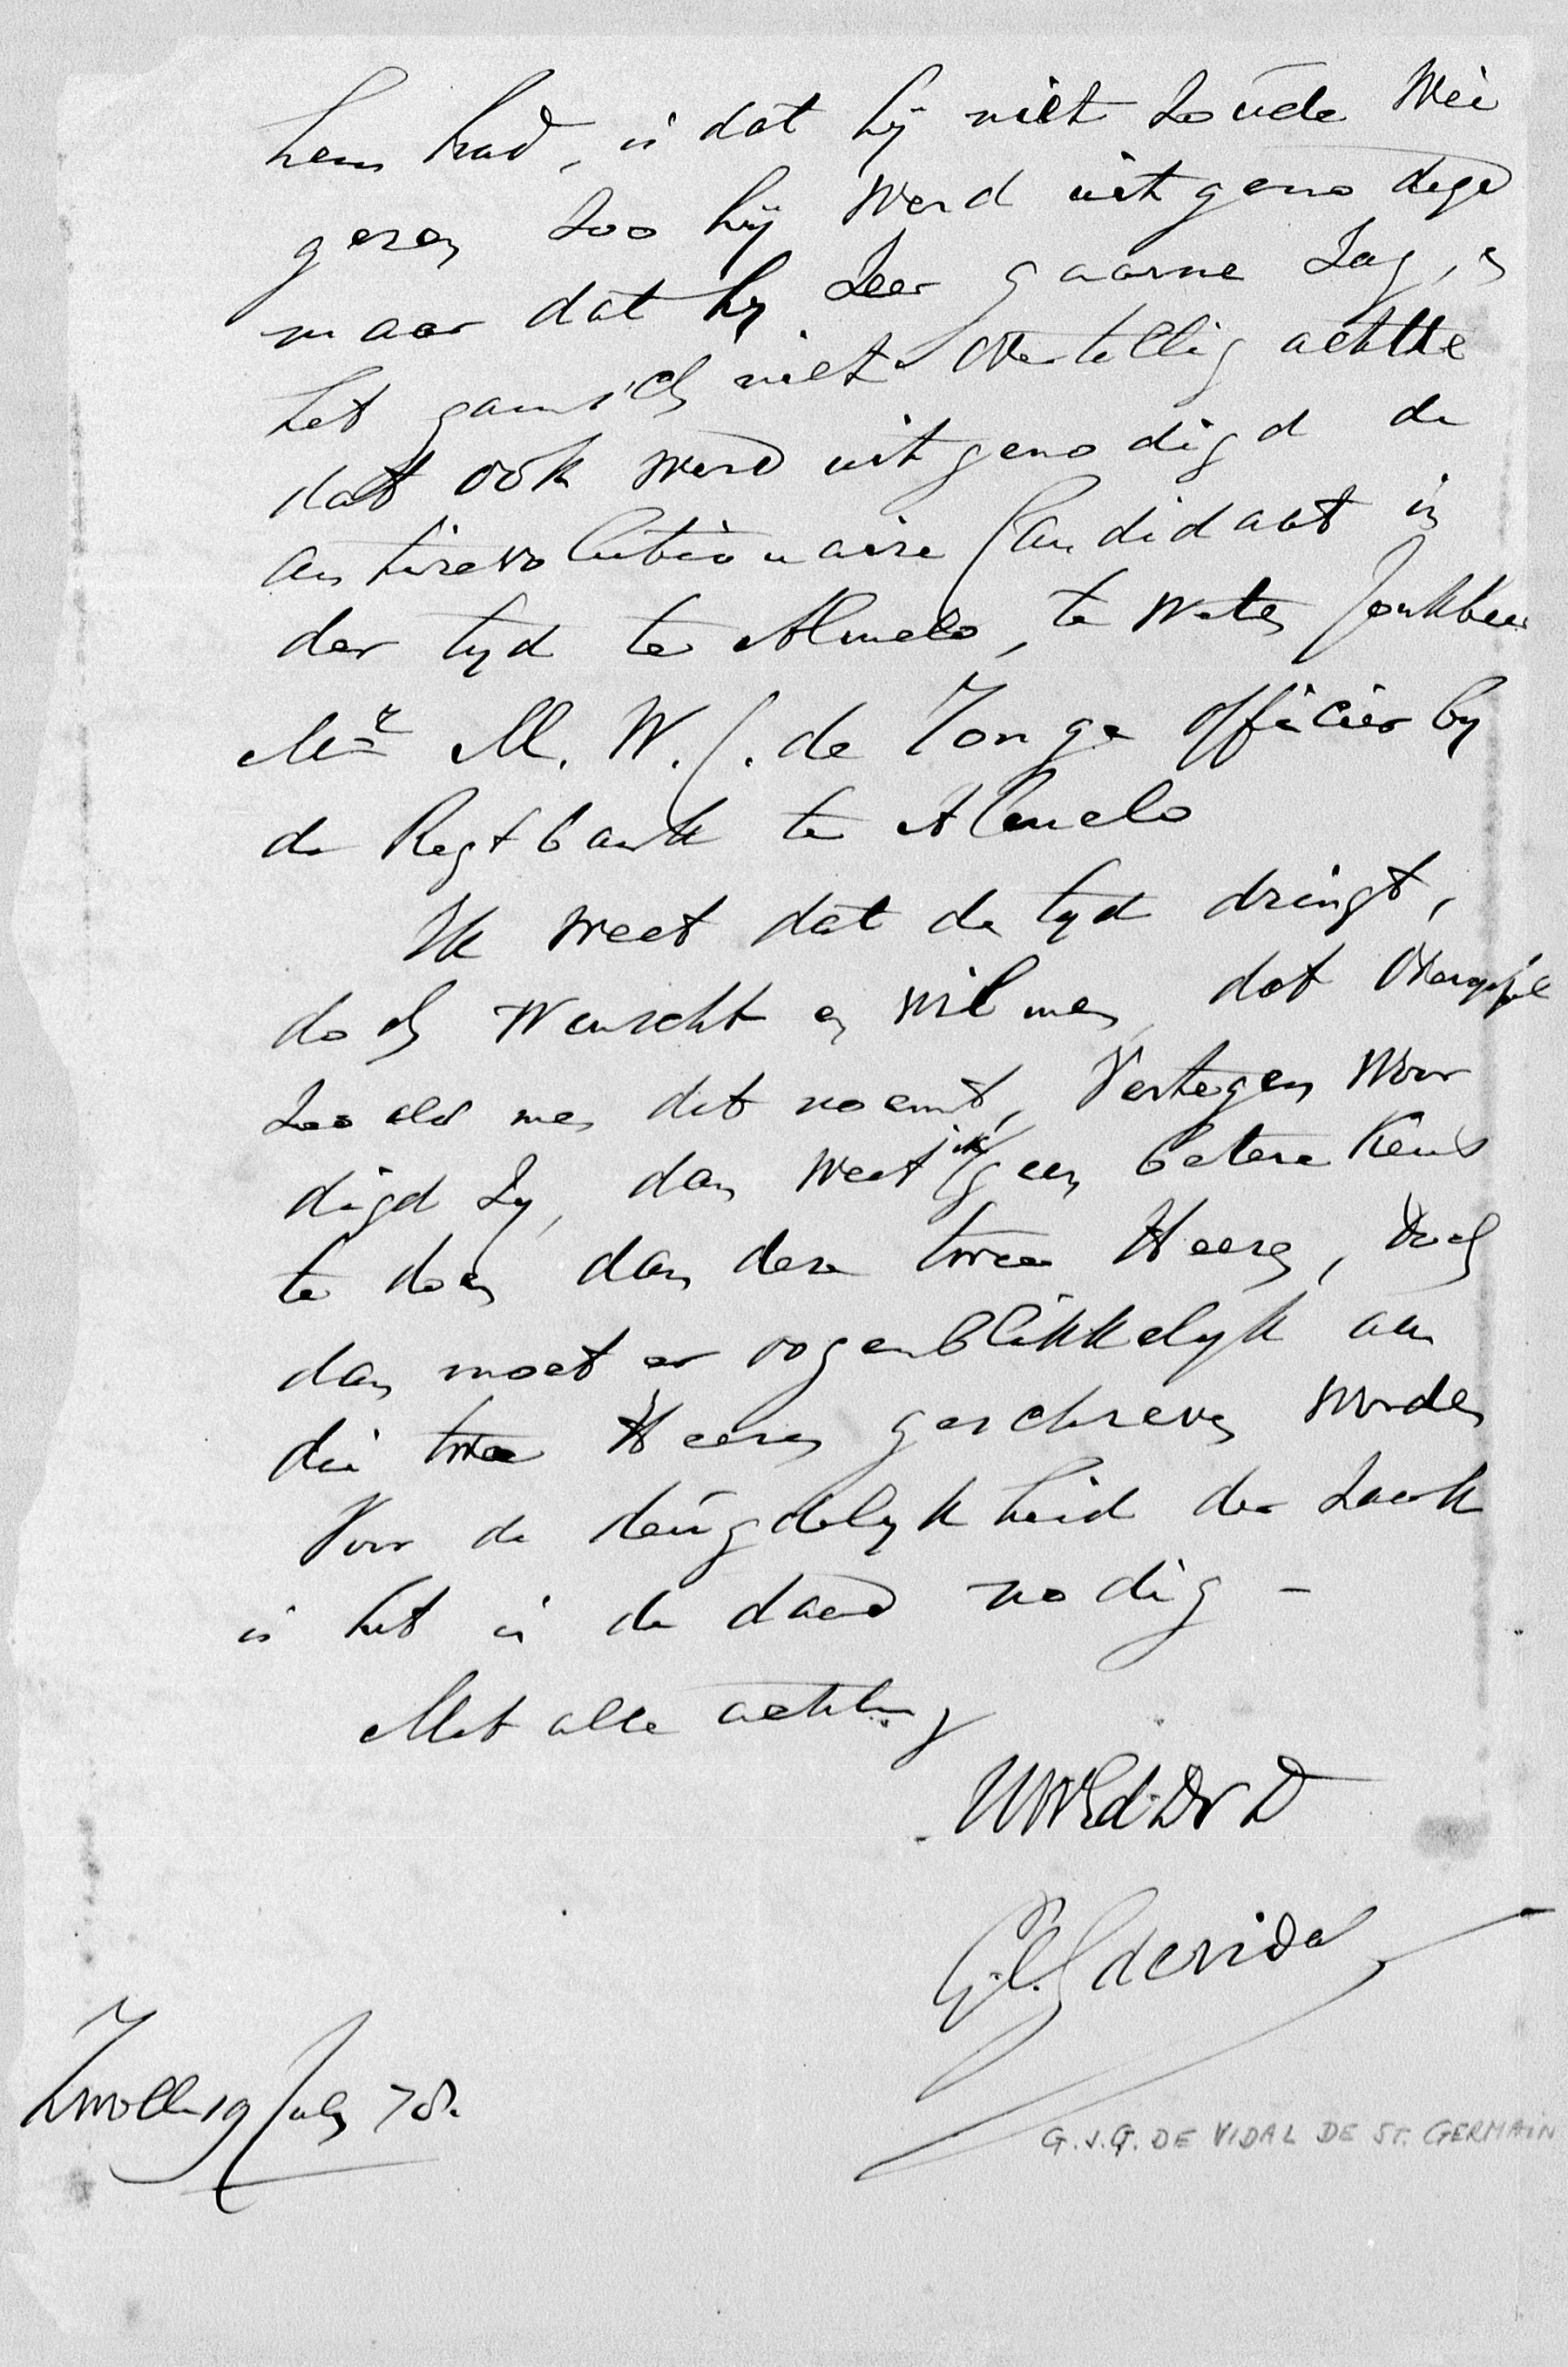 hem had, is dat hij niet zoude Wei
geren zoo hij werd uitgenodigd
maar dat hij zeer gaarne zag, en
het gansch niet overtollig achtte
dat ook werd uitgenodigd de
antirevolutionaire Candidaat in
der tyd te Almelo, te weten Jonkheer
Mr M. W. C. de Jonge officier by
de Regtbank te Almelo
Ik weet dat de tyd dringt,
doch wenscht en wil men, dat Overijssel
zoo als men dit noemt, Vertegenwoor
digd zy, dan weet ik geen betere Keus
te doen dan deze twee Heeren, doch
dan moet er oogenblikkelyk aan
die twee Heeren geschreven worden
Voor de deugdelykheid der zaak
is het in de daad nodig -
Met alle achting
UWEd.DWD
de Vidal
Zwolle 19 July 78.
G.J.G. DE VIDAL DE ST. GERMAIN